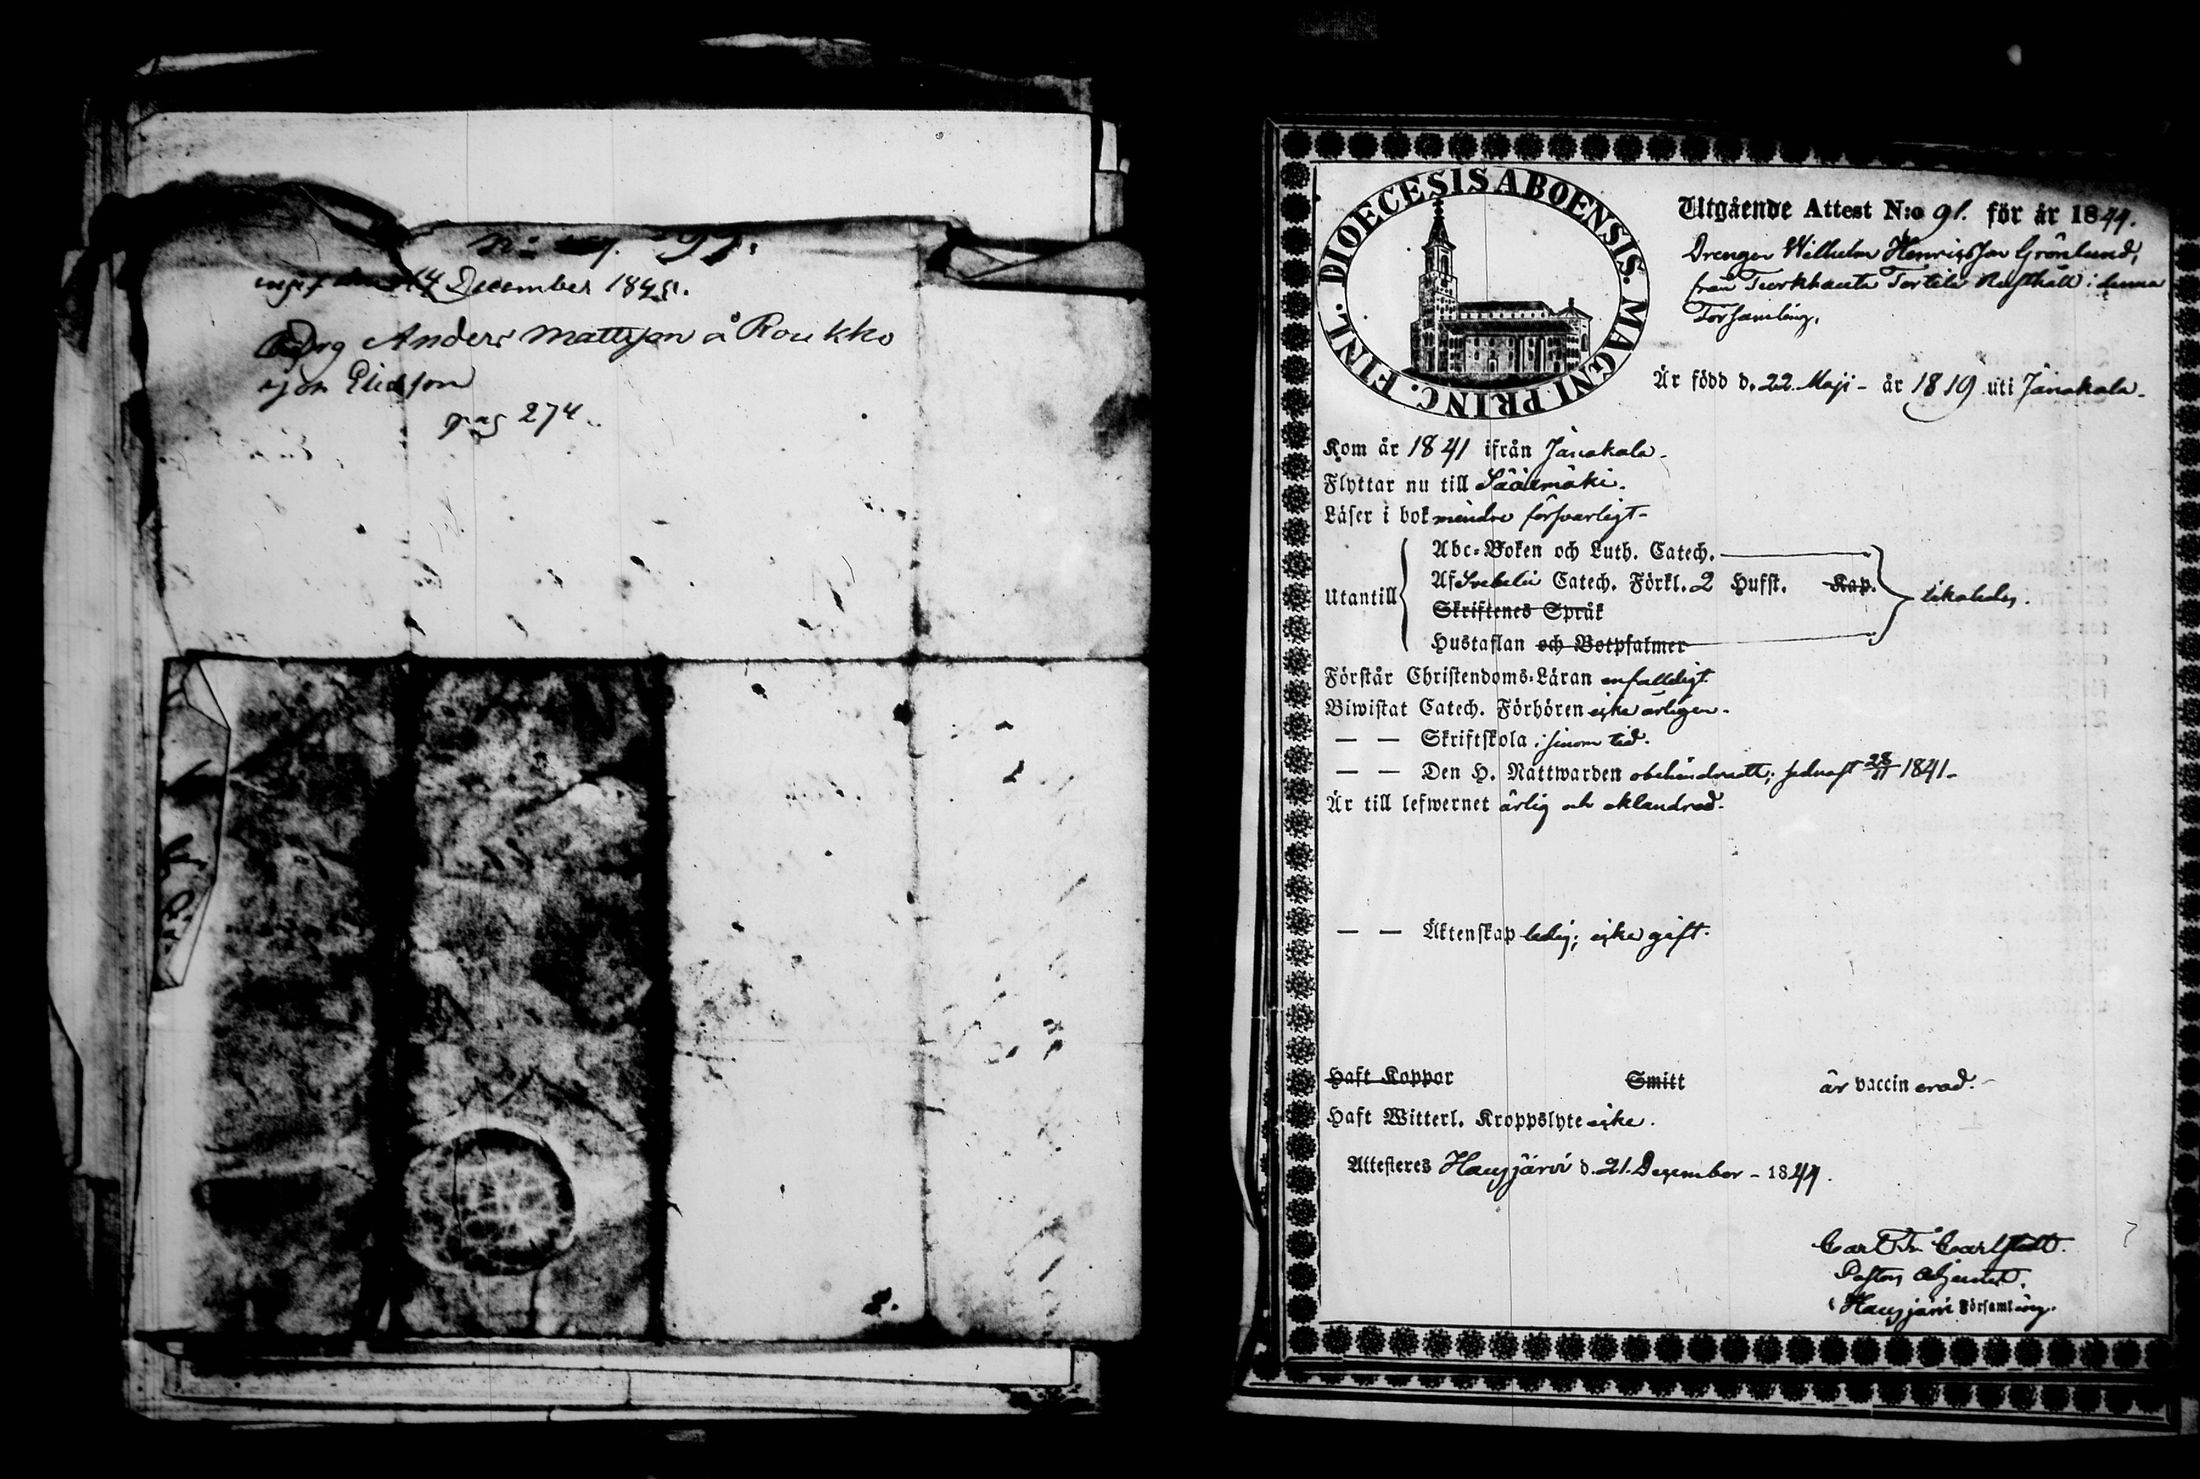 den 14 December 1845.
Drg Anders Mattsson å Roukko
pag 274.
DIOECESIS ABOENSIS. MAGNI PRINC. FINL.
Utgående Attest N:o 91. för år 1844.
Drengen Wilhelm Henricsson Grönlund,
från Turkhauta Torttila Rusthåll i denna
Församling.
Är född d. 22 Maji - år 1819 uti Janakala.
Kom år 1841 ifrån Janakala.
Flyttar nu till Sääxmäki.
Läser i bok mindre försvarligt.
Utantill
Abc-Boken och Luth. Catech.
Af Svebelii Catech. Förkl. 2 Hufst. Kap.
Skriftenes Språk
Hustaflan och Botpsalmer
likaledes.
Förstår Christendoms-Läran enfaldigt.
Biwistat Catech. Förhören icke årligen.
— — Skriftskola i sinom tid.
— — Den H. Nattwarden obehindradt; sednast 28/11 1841.
Är till lefwernet ärlig och oklandrad.
— — Äktenskap ledig; icke gift.
Haft Koppor Smitt är vaccinerad.
Haft Witterl. Kroppslyte icke.
Attesteres Hausjärvi d. 21. December - 1844.
Carl Fr. Carlstedt.
Pastors Adjunct.
i Hausjärvi Församling.